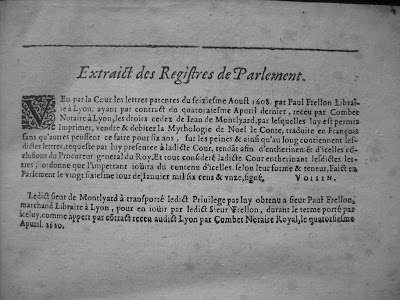 Extraict des Registres de Parlement.
VEu par la Cour les lettres patentes du seiziesme Aoust 1608. par Paul Frellon Librai-
re à Lyon, ayant par contract du quatorziesme Apuril dernier, receu par Combet
Notaire à Lyon, les droits cedez de Iean de Montlyard, par lesquelles luy est permis
Imprimer, vendre & debiter la Mythologie de Noel le Conte, traduite en François
sans qu'autres puissent ce faire pour six ans, sur les peines & ainsi qu'au long contiennent les-
dictes lettres, requeste par luy presentee à ladicte Cour, tendās afin d'entherinemēt d'icelles cō-
clusions du Procureur general du Roy, Et tout consideré ladicte Cour entherinant lesdictes let-
tres, ordonne que l'impetrant ioüira du contenu d'icelles selon leur forme & teneur, Faict en
Parlement le vingtsixiesme iour de Ianuier mil six cens & vnze, signé, VOISIN.
Ledict sieur de Montlyard à transporté ledict Priuilege par luy obtenu à sieur Paul Frellon,
marchand Libraire à Lyon, pour en ioüir par ledict Sieur Frellon, durant le terme porté par
iceluy, comme appert par cōtract receu audict Lyon par Combet Notaire Royal, le quatorsiesme
Apuril. 1610.